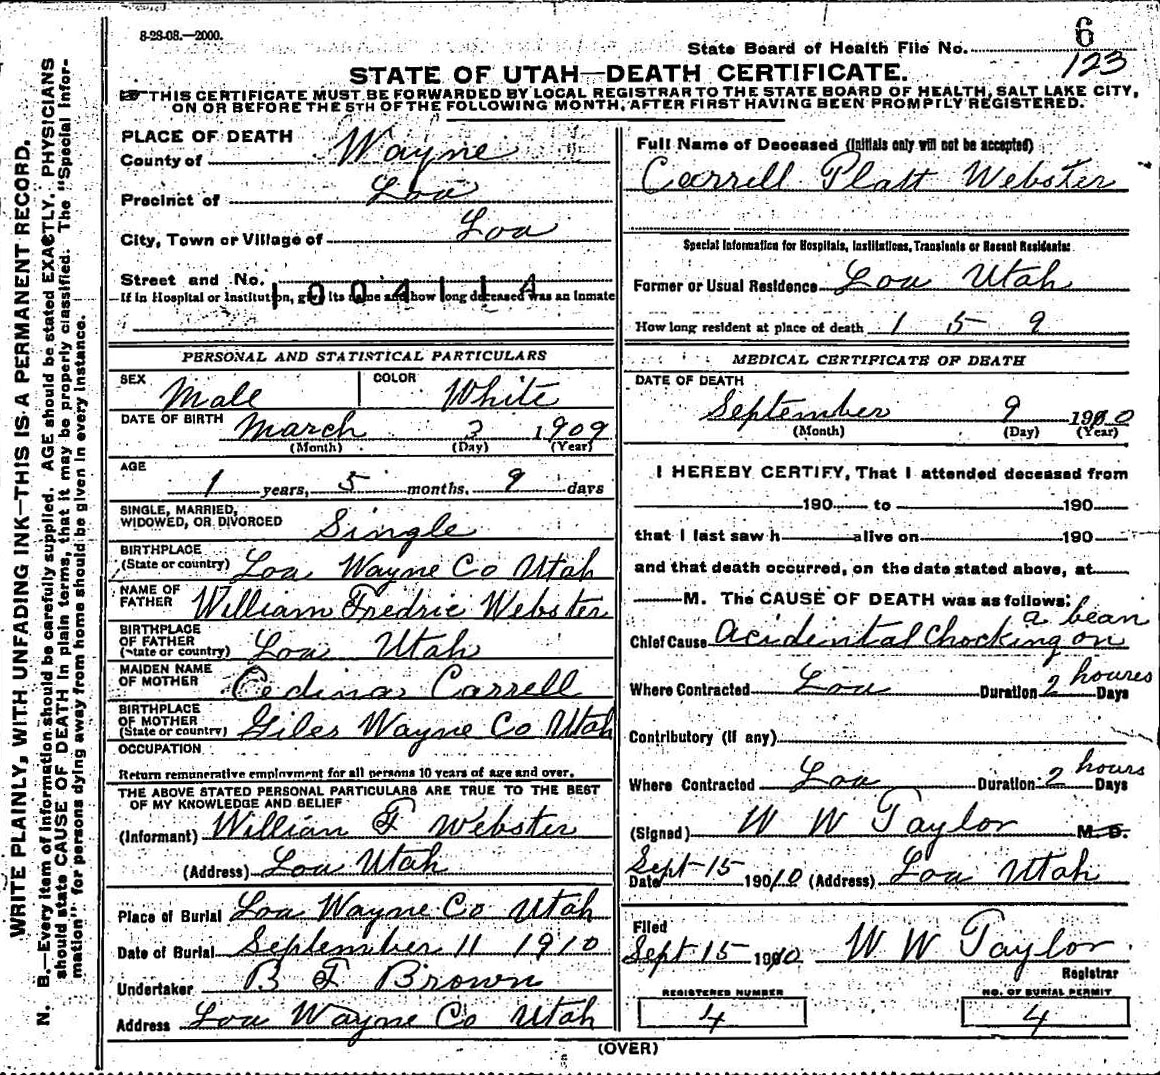 8-28-08.—2000.
6
State Board of Health File No.
123
STATE OF UTAH—DEATH CERTIFICATE.
THIS CERTIFICATE MUST BE FORWARDED BY LOCAL REGISTRAR TO THE STATE BOARD OF HEALTH, SALT LAKE CITY,
ON OR BEFORE THE 5TH OF THE FOLLOWING MONTH, AFTER FIRST HAVING BEEN PROMPTLY REGISTERED.
WRITE PLAINLY, WITH UNFADING INK—THIS IS A PERMANENT RECORD.
N. B.—Every item of information should be carefully supplied. AGE should be stated EXACTLY. PHYSICIANS
should state CAUSE OF DEATH in plain terms, that it may be properly classified. The "Special Infor-
mation" for persons dying away from home should be given in every instance.
PLACE OF DEATH
County of Wayne
Precinct of Loa
City, Town or Village of Loa
Street and No.
1004114
If in Hospital or Institution, give its name and how long deceased was an inmate
PERSONAL AND STATISTICAL PARTICULARS
SEX Male COLOR White
DATE OF BIRTH March 3 1909
(Month) (Day) (Year)
AGE
1 years, 5 months, 9 days
SINGLE, MARRIED,
WIDOWED, OR DIVORCED Single
BIRTHPLACE
(State or country) Loa Wayne Co Utah
NAME OF
FATHER William Fredric Webster
BIRTHPLACE
OF FATHER
(State or country) Loa Utah
MAIDEN NAME
OF MOTHER Cedina Carrell
BIRTHPLACE
OF MOTHER
(State or country) Giles Wayne Co Utah
OCCUPATION
Return remunerative employment for all persons 10 years of age and over.
THE ABOVE STATED PERSONAL PARTICULARS ARE TRUE TO THE BEST
OF MY KNOWLEDGE AND BELIEF
(Informant) William F Webster
(Address) Loa Utah
Place of Burial Loa Wayne Co Utah
Date of Burial September 11 1910
Undertaker B F Brown
Address Loa Wayne Co Utah
Full Name of Deceased (Initials only will not be accepted)
Carrell Platt Webster
Special Information for Hospitals, Institutions, Transients or Recent Residents:
Former or Usual Residence Loa Utah
How long resident at place of death 1 5 9
MEDICAL CERTIFICATE OF DEATH
DATE OF DEATH
September 9 1910
(Month) (Day) (Year)
I HEREBY CERTIFY, That I attended deceased from
190 to 190
that I last saw h alive on 190
and that death occurred, on the date stated above, at
M. The CAUSE OF DEATH was as follows:
a bean
Chief Cause Acidental Chocking on
Where Contracted Loa Duration 2 houres Days
Contributory (if any)
Where Contracted Loa Duration 2 hours Days
(Signed) W W Taylor M. D.
Date Sept 15 1910 (Address) Loa Utah
Filed
Sept 15 1910 W W Taylor
Registrar
REGISTERED NUMBER NO. OF BURIAL PERMIT
4 4
(OVER)